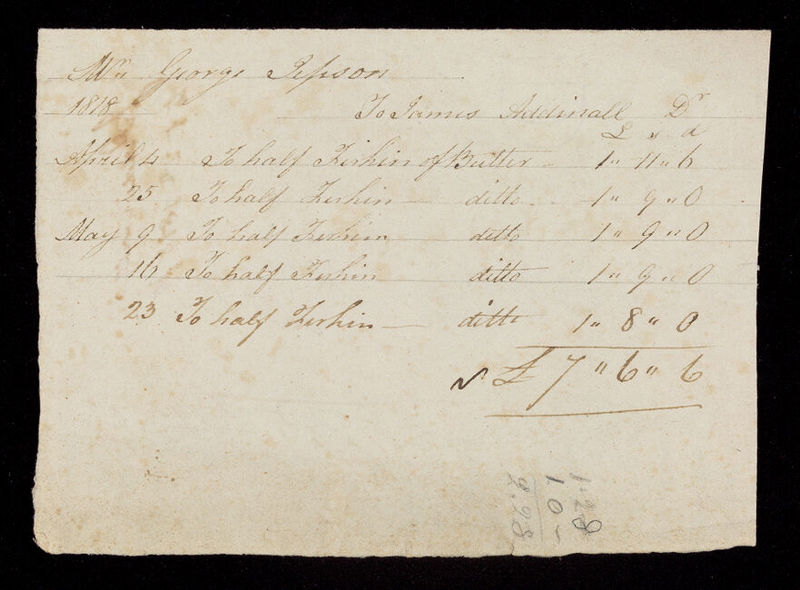 Mr George Jepson
1818 To James Addinall Dr
£ " d
April 4 To half Firkin of Butter 1 " 11 " 6
25 To half Firkin ditto 1 " 9 " 0
May 9 To half Firkin ditto 1 " 9 " 0
16 To half Firkin ditto 1 " 9 " 0
23 To half Firkin ditto 1 " 8 " 0
£ 7 " 6 " 6